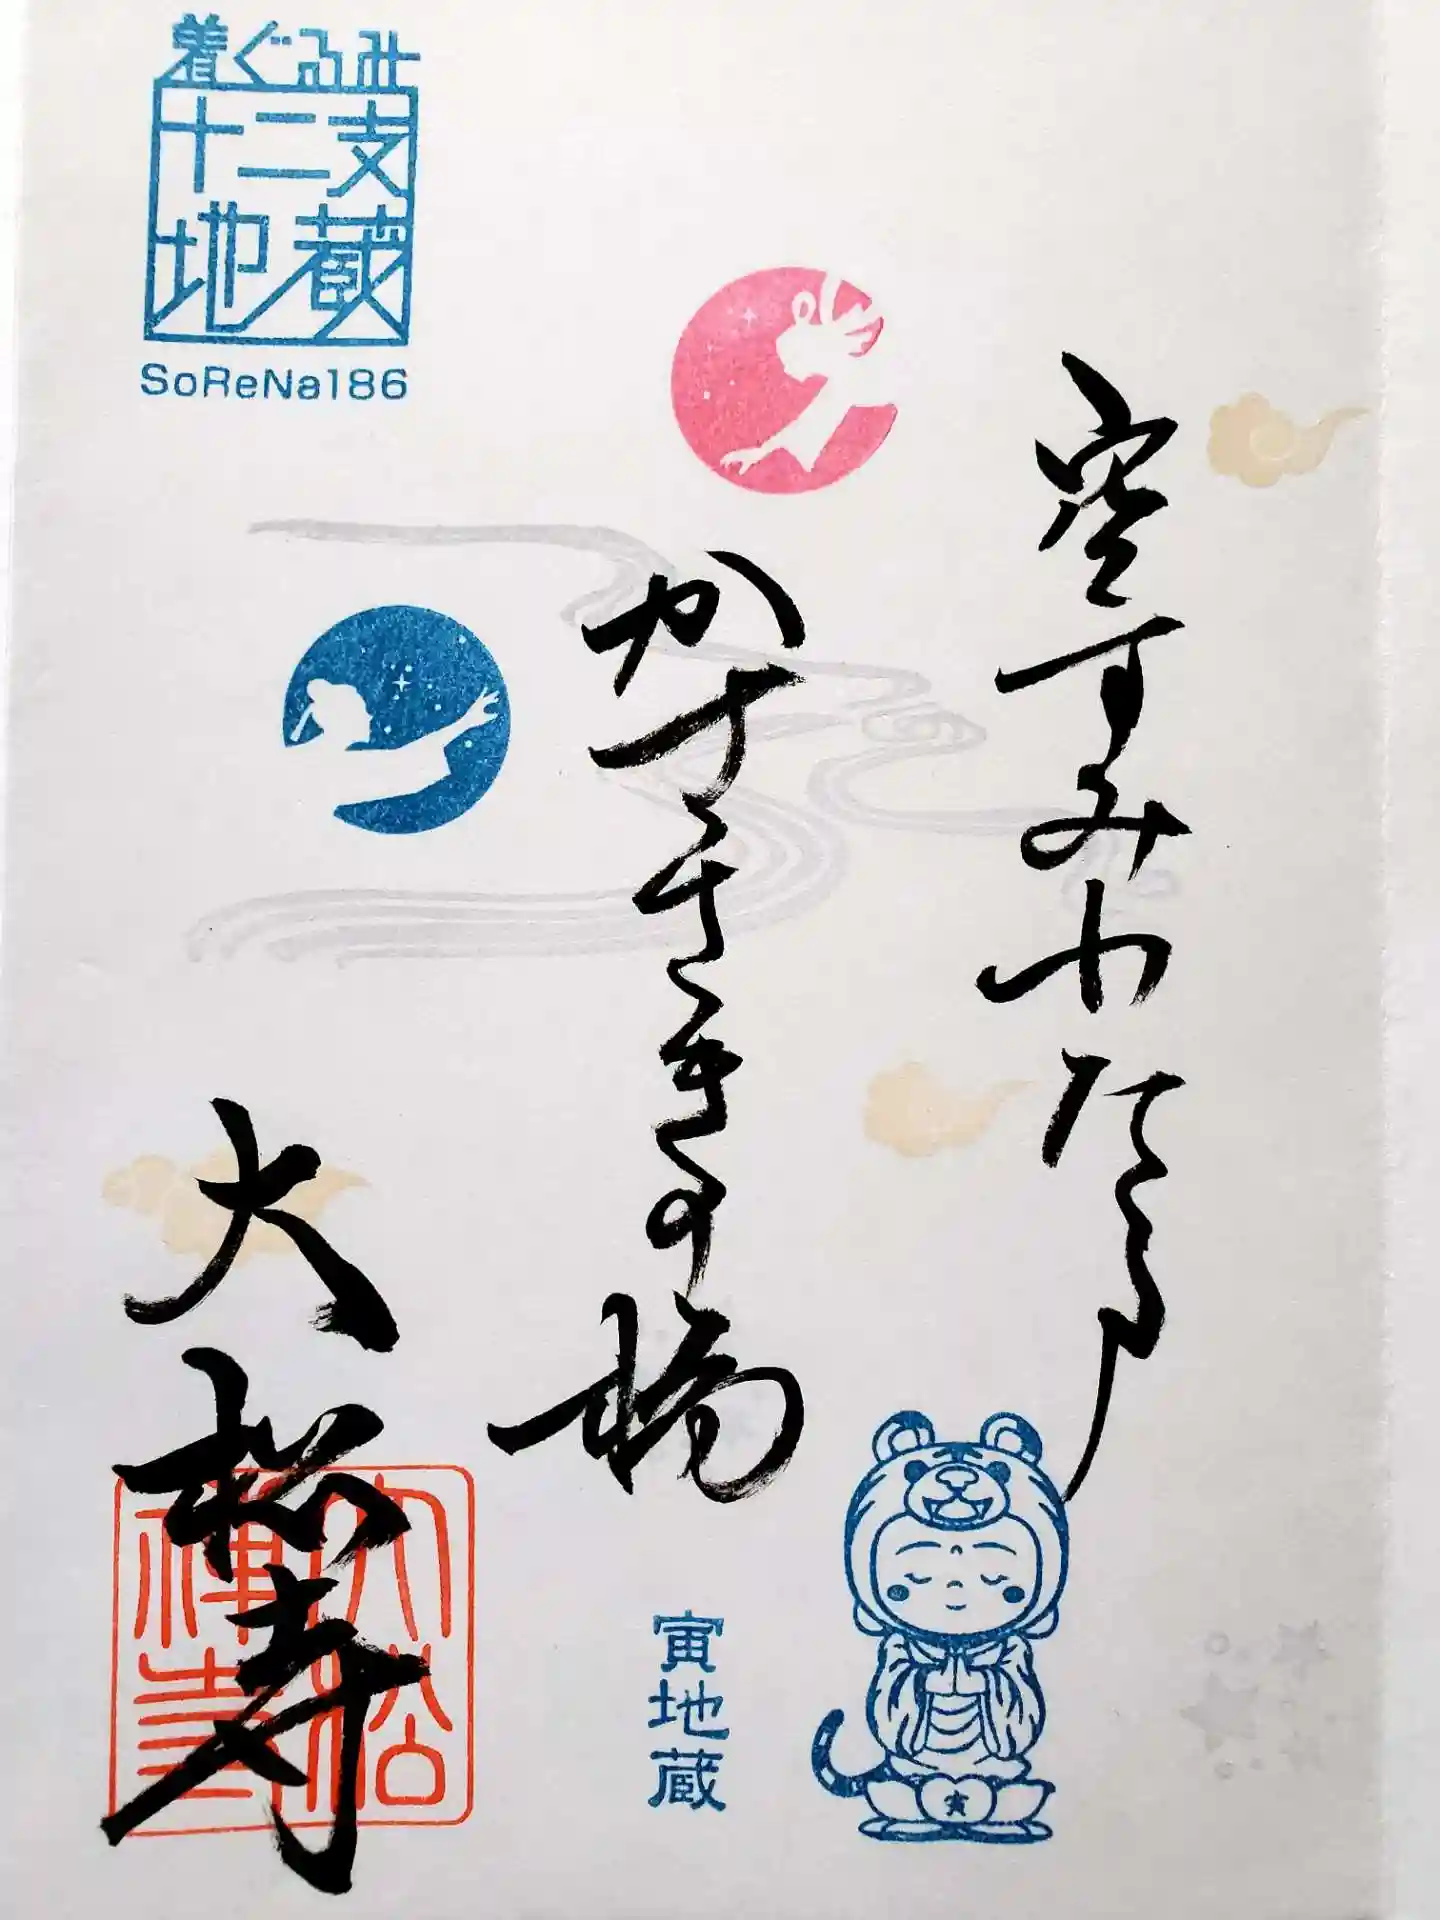 着ぐるみ
十二支
地蔵
SoReNa186
空すみわたる
かささきの橋
大松寺
大松
禅寺
寅地蔵
寅